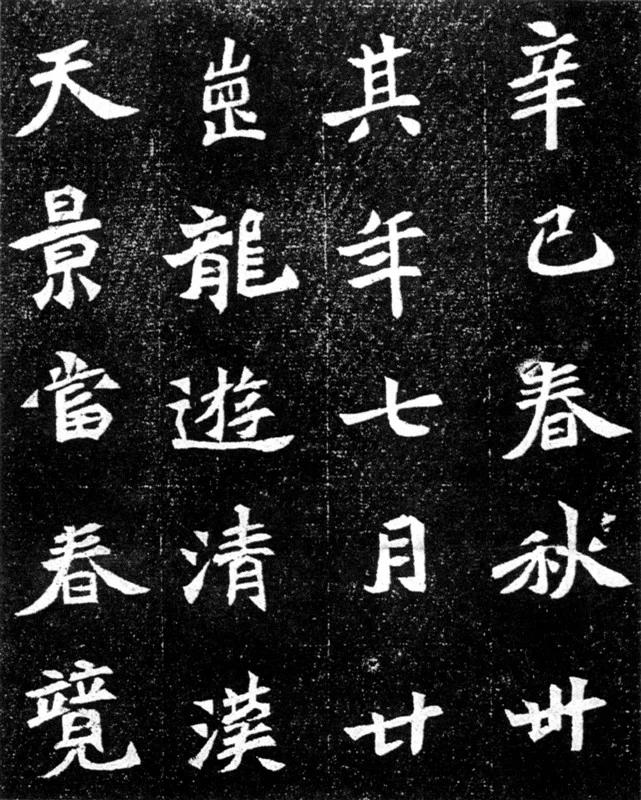 辛巳春秋卌
其年七月廿
龍遊清漢
天景當春竟